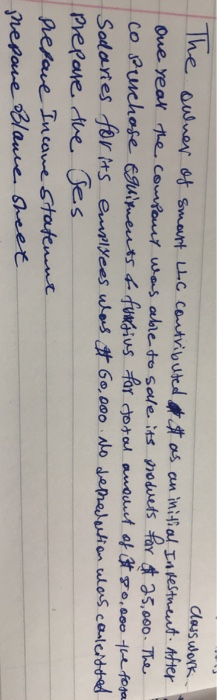 Classwork.
The owner of Smart LLC contributed $ as an initial Investment. After
one year the company was able to sale its products for $ 25,000. The
co purchase equipments & for total amount of $ 80,000 the total
Salaries for its employees was $ 60,000. No depreciation was
Prepare the Jes
Prepare Income Statement
Prepare Blance Sheet